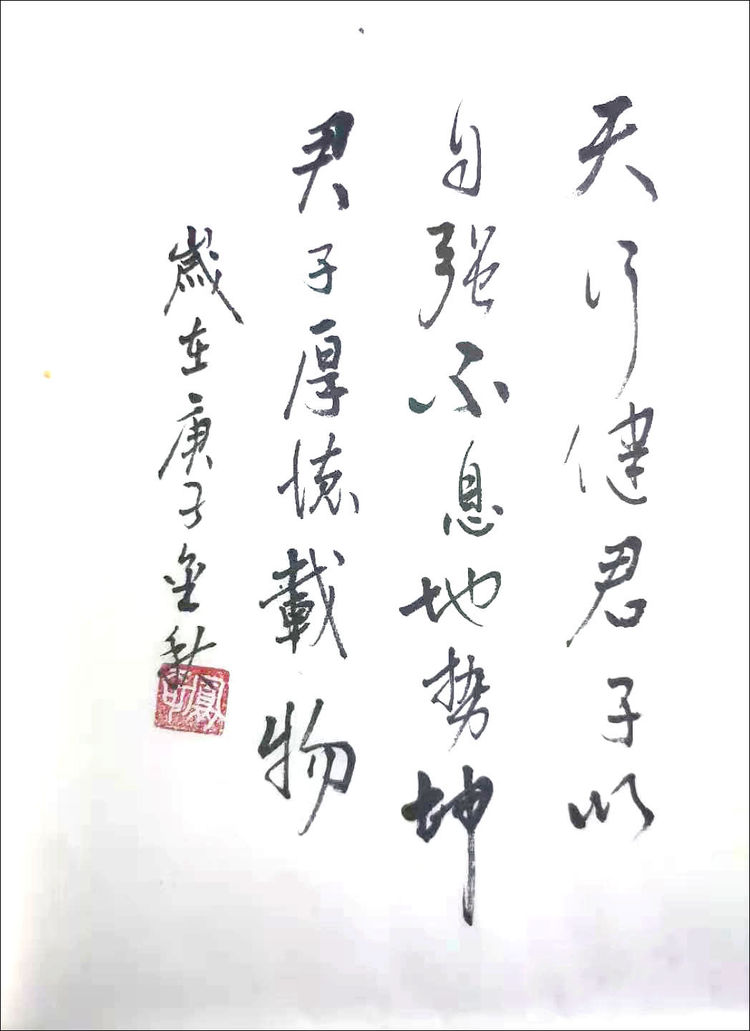 天行健君子以
自强不息地势坤
君子厚德载物
歲在庚子金秋